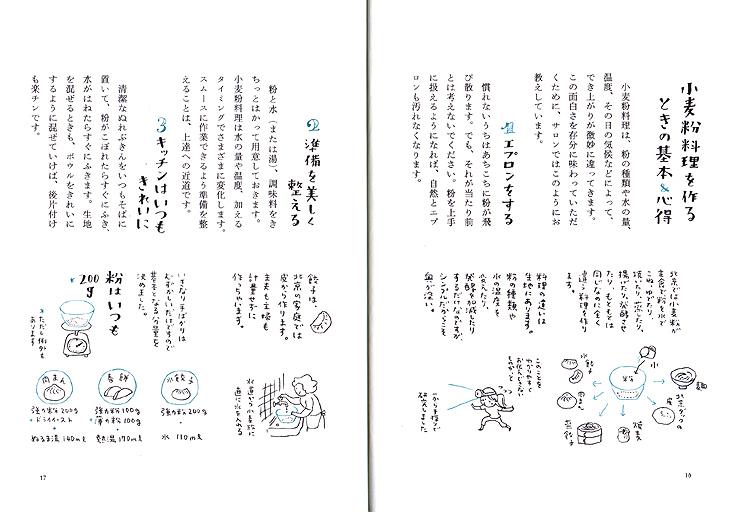 小麦粉料理を作る
ときの基本&心得
小麦粉料理は、粉の種類や水の量、
温度、その日の気候などによって、
でき上がりが微妙に違ってきます。
この面白さを存分に味わっていただ
くために、サロンではこのようにお
教えしています。
1 エプロンをする
慣れないうちはあちこちに粉が飛
び散ります。でも、それが当たり前
とは考えないでください。粉を上手
に扱えるようになれば、自然とエプ
ロンも汚れなくなります。
北京では小麦粉が
主食で、粉を水で
こね、ゆでたり、
焼いたり、蒸したり、
揚げたり、発酵させ
たり、もともとは
同じなのに全く
違う料理を作り
ます。
料理の違いは
生地にあります。
粉の種類や
水の温度を
変えたり、
発酵を加減したり
するだけなのですが
シンプルだからこそ
奥が深い。
水
粉
麺
北京ダックの皮
焼麦
蒸餃子
肉まん
水餃子
このことを
わかりやすく
お伝えしたくて
もっかと
こから手探りで
研究しました
16
2 準備を美しく
整える
粉と水(または湯)、調味料をき
ちっとはかって用意しておきます。
小麦粉料理は水の量や温度、加える
タイミングでさまざまに変化します。
スムースに作業できるよう準備を整
えることは、上達への近道です。
3 キッチンはいつも
きれいに
清潔なぬれぶきんをいつもそばに
置いて、粉がこぼれたらすぐにふき、
水がはねたらすぐにふきます。生地
を混ぜるときも、ボウルをきれいに
するように混ぜていけば、後片付け
も楽チンです。
餃子は、
北京の家庭では
皮から作ります。
主夫も主婦も
計量せずに
作っちゃいます。
水道から小麦粉に
直に水を入れる
いきなり手ばかりは
むずかしいだけですので
基本となる分量を
決めました。
粉はいつも
200g
ただし例外も
あります
水餃子
強力粉 200g
水 110ml
春餅
強力粉 100g
薄力粉 100g
熱湯 170ml
肉まん
強力粉 200g
ドライイースト
ぬるま湯 140ml
17